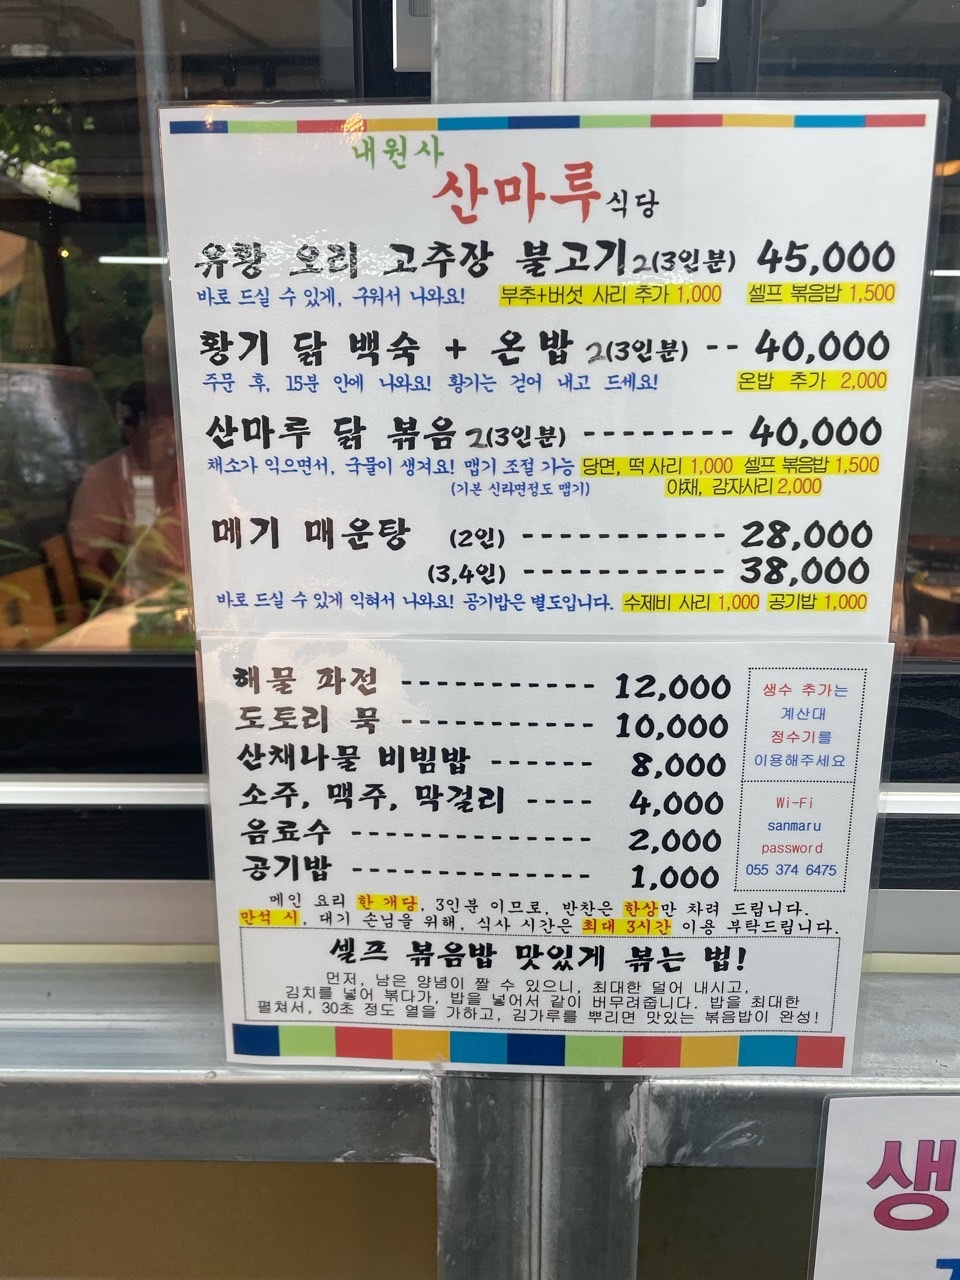 내원사
산마루 식당
유황 오리 고추장 불고기 2(3인분) 45,000
바로 드실 수 있게, 구워서 나와요! 부추+버섯 사리 추가 1,000 셀프 볶음밥 1,500
황기 닭 백숙 + 온밥 2(3인분) -- 40,000
주문 후, 15분 안에 나와요! 황기는 걷어 내고 드세요! 온밥 추가 2,000
산마루 닭 볶음 2(3인분) -------- 40,000
채소가 익으면서, 국물이 생겨요! 맵기 조절 가능 당면, 떡 사리 1,000 셀프 볶음밥 1,500
(기본 신라면정도 맵기) 야채, 감자사리 2,000
메기 매운탕 (2인) ----------- 28,000
(3,4인) ----------- 38,000
바로 드실 수 있게 익혀서 나와요! 공기밥은 별도입니다. 수제비 사리 1,000 공기밥 1,000
해물 파전 ------------ 12,000
도토리 묵 ------------ 10,000
산채나물 비빔밥 ------ 8,000
소주, 맥주, 막걸리 ---- 4,000
음료수 --------------- 2,000
공기밥 --------------- 1,000
생수 추가는
계산대
정수기를
이용해주세요
Wi-Fi
sanmaru
password
055 374 6475
메인 요리 한 개당, 3인분 이므로, 반찬은 한상만 차려 드립니다.
만석 시, 대기 손님을 위해, 식사 시간은 최대 3시간 이용 부탁드립니다.
셀프 볶음밥 맛있게 볶는 법!
먼저, 남은 양념이 짤 수 있으니, 최대한 덜어 내시고,
김치를 넣어 볶다가, 밥을 넣어서 같이 버무려줍니다. 밥을 최대한
펼쳐서, 30초 정도 열을 가하고, 김가루를 뿌리면 맛있는 볶음밥이 완성!
생